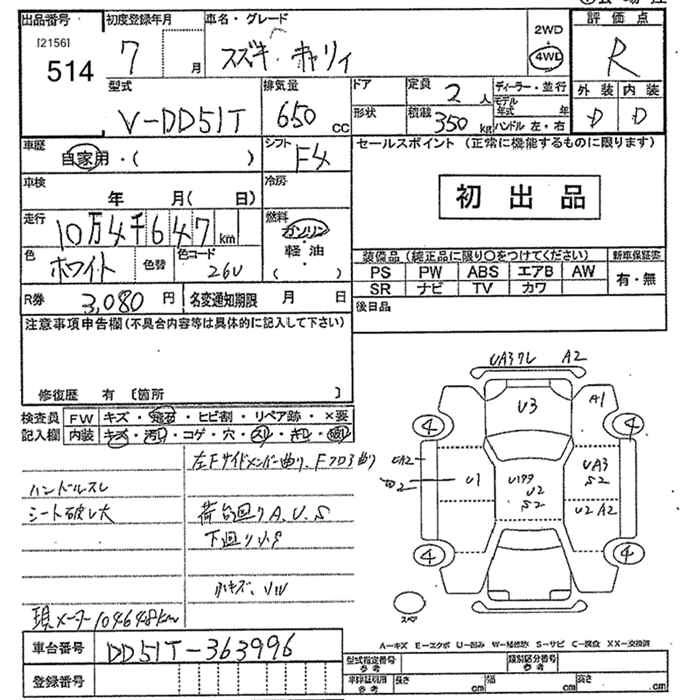 出品番号 初度登録年月 車名・グレード 評価点
[2156]
514
7 月 スズキ・キャリィ 2WD 4WD R
型式 排気量 ドア 定員 2 人 ディーラー・並行 外装 内装
V-DD51T 650 cc 形状 積載 350 kg モデル年式 年 D D
ハンドル 左・右
車歴 自家用・( ) シフト F4 セールスポイント (正常に機能するものに限ります)
車検 年 月( 日) 冷房 初出品
走行 10万4千647 km 燃料 ガソリン・軽油 ( )
色 ホワイト 色替 色コード 26U
装備品 (純正品に限り○をつけてください) 新車保証書
PS PW ABS エアB AW 有・無
SR ナビ TV カワ
R券 3,080 円 名変通知期限 月 日 後日品
注意事項申告欄 (不具合内容等は具体的に記入して下さい)
修復歴 有 〔箇所 〕
検査員 FW キズ・飛石・ヒビ割・リペア跡・×要
記入欄 内装 キズ・汚れ・コゲ・穴・スレ・キレ・破レ
左Fサイドメンバー曲り、Fフロア曲り
ハンドルスレ
シート破レ大 荷台廻りA、U、S
下廻り小S
小キズ、UW
現メーター104648km
車台番号 DD51T-363996
登録番号
A2
U3 A1
4 4
UA2 U1 U2 S2 UA3 S2
U2 A2
4 4
スペア
A-キズ E-エクボ U-凹み W-補修跡 S-サビ C-腐食 XX-交換済
型式指定番号 参考 類別区分番号 参考
車検証利用 参考 長さ cm 幅 cm 高さ cm